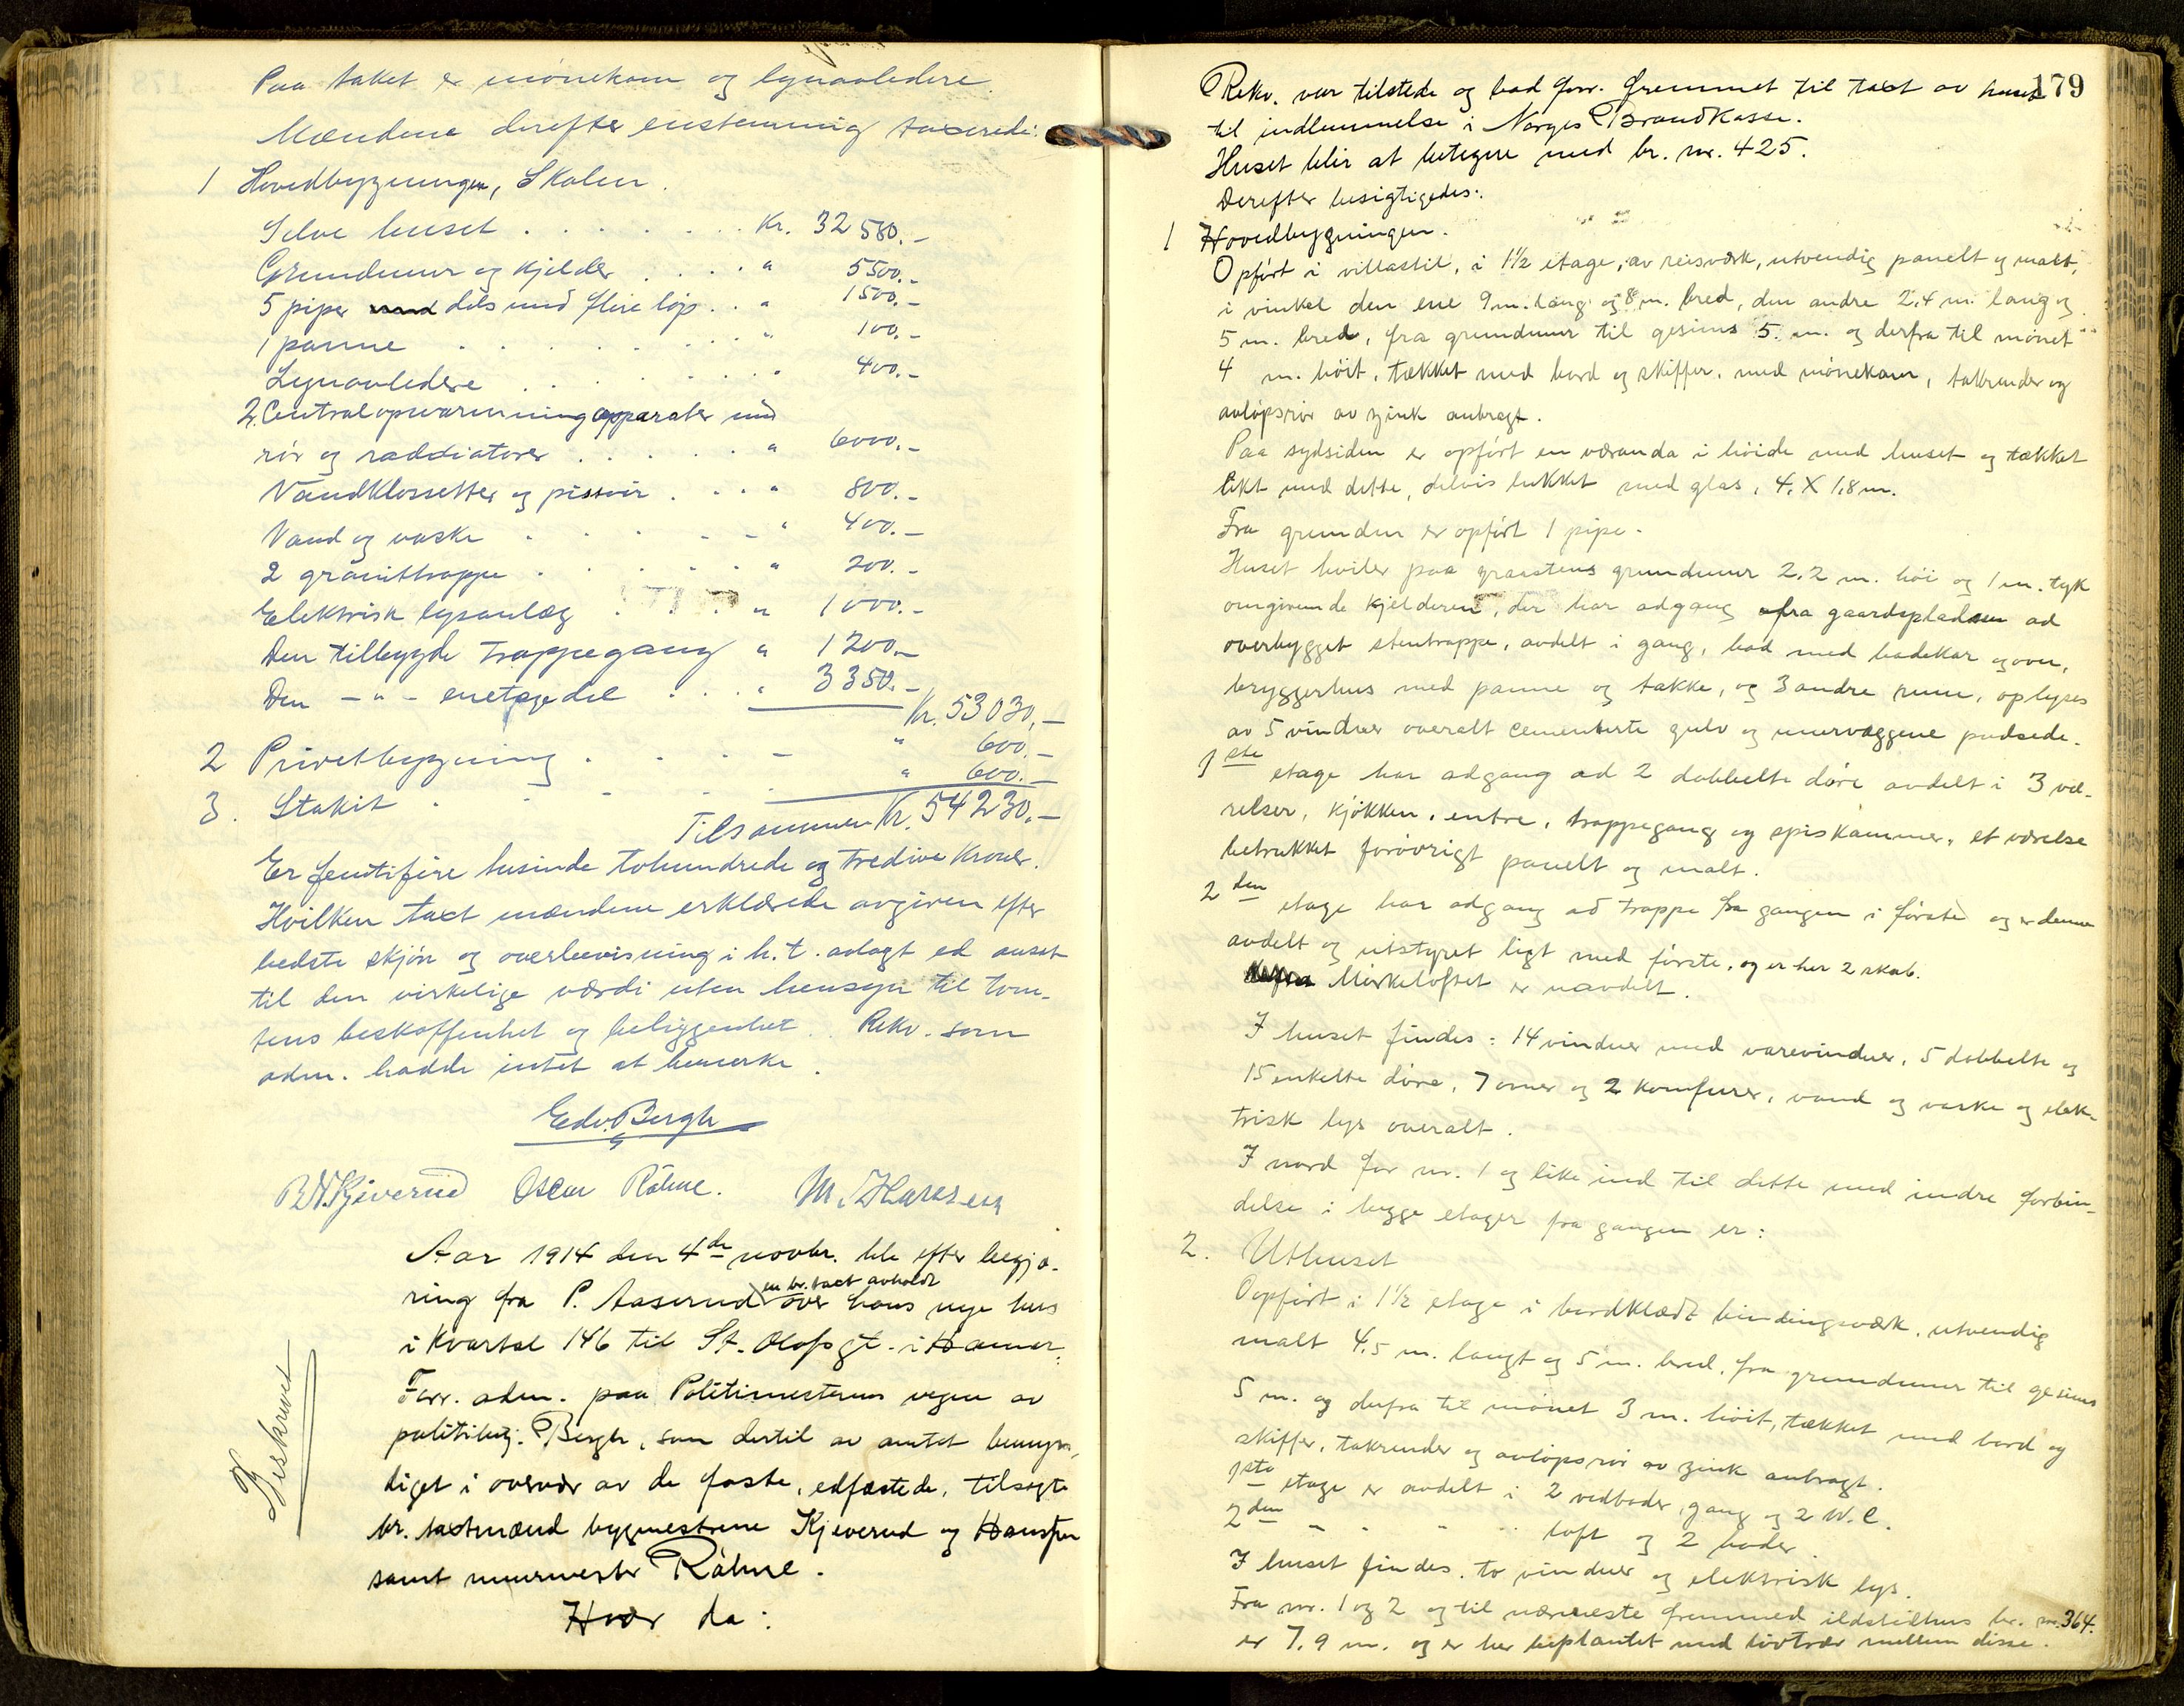 Paa taket er mönekam og lynavledere.
Mændene derefter enstemmig taxerede:
1 Hovedbygningen, Skolen.
Selve huset . . . . . . . Kr. 32 580.-
Grundmur og kjelder . . . . " 5500.-
5 piper med dels med flere löp . . " 1500.-
1 panne . . . . . . . . . " 100.-
Lynavledere . . . . . . . " 400.-
2 Centralopvarmningapparater med
rör og raddiatorer . . . . . " 6000.-
Vandklossetter og pissoir . . . " 800.-
Vand og vaske . . . . . " 400.-
2 granittrappe . . . . . . " 200.-
Elektrisk lysanlæg . . . . " 1000.-
Den tilbygde trappegang " 1200.-
Den - " - enetage del . . . " 3350.-
Kr. 53030,-
2 Privetbygning . . . . - " 600.-
3. Stakit . . . . . " 600.-
Tilsammen Kr. 54230.-
Er femtifire tusinde tohundrede og tredive Kroner.
Hvilken taxt mændene erklærede avgiven efter
bedste skjön og overbevisning i h. t. avlagt ed anset
til den virkelige værdi uten hensyn til tom-
tens beskaffenhet og beliggenhet. Rekv. som
adm. hadde intet at bemerke.
Edv. Bergh
B.N. Kjeverud Oscar Råhne. M. Hansen
Beskrevet
Aar 1914 den 4de novbr. ble efter begjæ-
en br. taxt avholdt
ring fra P. Aaserud over hans nye hus
i Kvartal 146 til St. Olafs gt. i Hamar:
Forr. adm. paa Politimesterens vegne av
politibtj. Bergh, som dertil av amtet bemyn-
diget i overvær av de faste, edfæstede, tilsagte
br. taxtmænd bygmestrene Kjeverud og Hansen
samt murmester Råhne.
Hvor da:
179
Rekv. var tilstede og bad forr. fremmet til taxt av huset
til indlemmelse i Norges Brandkasse.
Huset blir at betegne med br. nr. 425.
Derefter besigtigedes:
1 Hovedbygningen.
Opfört i villastil, i 1½ etage, av reisverk, utvendig panelt og malt,
i vinkel den ene 9 m. lang og 8 m. bred, den andre 2.4 m. lang og
5 m. bred, fra grundmur til gesims 5. m. og derfra til mönet
4 m. höit, tækket med bord og skiffer, med mönekam, takrender og
avlöpsrör av zink anbragt.
Paa sydsiden er opfört en veranda i höide med huset og tækket
likt med dette, delvis lukket med glas, 4. X 1,8 m.
Fra grunden er opfört 1 pipe.
Huset hviler paa graastens grundmur 2.2 m. höi og 1 m. tyk
omgivende kjelderen, der har adgang fra gaardspladsen ad
overbygget stentrappe, avdelt i gang, bad med badekar og ovn,
bryggerhus med panne og takke, og 3 andre rum, oplyses
av 5 vinduer overalt cementerte gulv og murvæggene pudsede.
1ste etage har adgang ad 2 dobbelte döre avdelt i 3 væ-
relser, kjökken, entre, trappegang og spiskammer, et værelse
betrukket forövrigt panelt og malt.
2den etage har adgang ad trappe fra gangen i förste og er denne
avdelt og utstyret ligt med förste, og er her 2 skab.
Mörkeloftet er uavdelt.
I huset findes: 14 vinduer med varevinduer, 5 dobbelte og
15 enkelte döre, 7 ovner og 2 komfurer, vand og vaske og elek-
trisk lys overalt.
I nord for nr. 1 og like ind til dette med indre forbin-
delse i begge etager fra gangen er:
2. Uthuset
Oopfört i 1½ etage i bordklædt bindingsværk, utvendig
malt 4,5 m. langt og 5 m. bred, fra grundmur til gesims
5 m. og derfra til mönet 3 m. höit, tækket med bord og
skiffer, takrender og avlöpsrör av zink anbragt.
1ste etage er avdelt i 2 vedboder, gang og 2 W.C.
2den - " " " loft og 2 boder.
I huset findes to vinduer og elektrisk lys.
Fra nr. 1 og 2 og til nærmeste fremmed ildstedhus br. nr. 364.
er 7.9 m. og er her beplantet med lövtrær mellem disse.